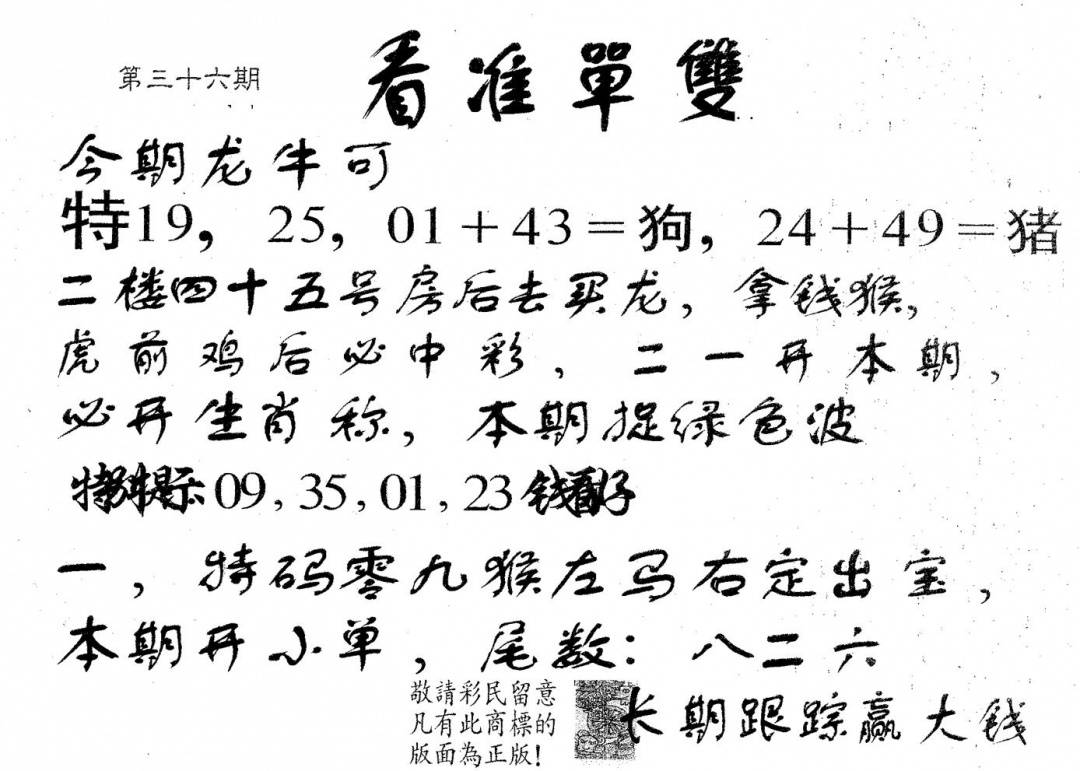 第三十六期
看准單雙
今期龙牛可
特19，25，01＋43＝狗，24＋49＝猪
二楼四十五号房后去买龙，拿钱猴，
虎前鸡后必中彩，二一开本期，
必开生肖称，本期捉绿色波
特别提示：09，35，01，23钱看好
一，特码零九猴左马右定出宝，
本期开小单，尾数：八二六
敬請彩民留意
凡有此商標的
版面為正版！
长期跟踪赢大钱